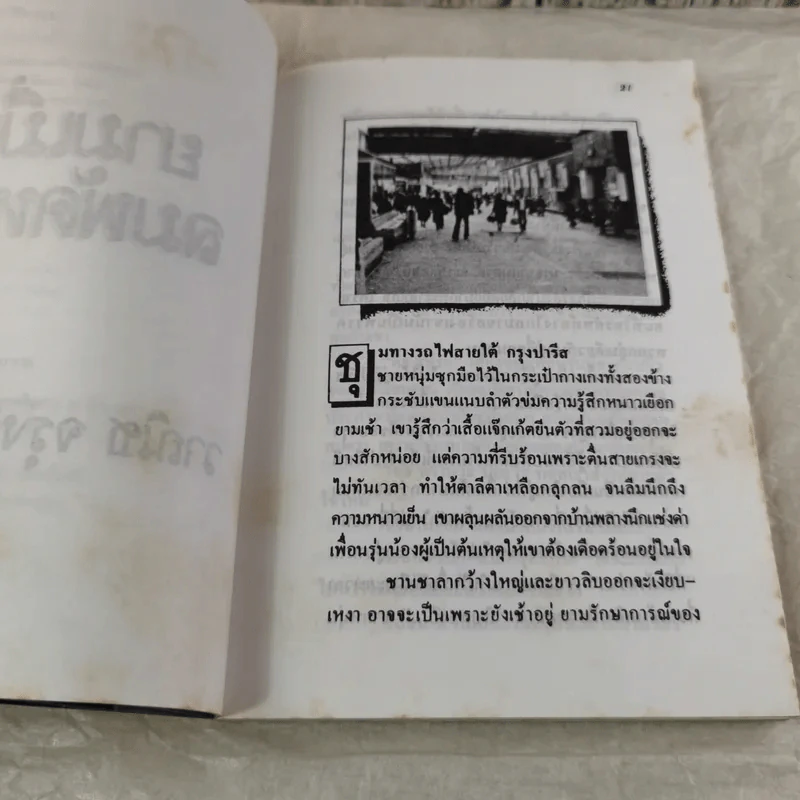 21
ชุมทางรถไฟสายใต้ กรุงปารีส
ชายหนุ่มซุกมือไว้ในกระเป๋ากางเกงทั้งสองข้าง
กระชับแขนแนบลำตัวข่มความรู้สึกหนาวเยือก
ยามเช้า เขารู้สึกว่าเสื้อแจ๊กเก้ตยีนตัวที่สวมอยู่ออกจะ
บางสักหน่อย แต่ความที่รีบร้อนเพราะตื่นสายเกรงจะ
ไม่ทันเวลา ทำให้ตาลีตาเหลือกลุกลน จนลืมนึกถึง
ความหนาวเย็น เขาผลุนผลันออกจากบ้านพลางนึกแช่งด่า
เพื่อนรุ่นน้องผู้เป็นต้นเหตุให้เขาต้องเดือดร้อนอยู่ในใจ
ชานชาลากว้างใหญ่และยาวลิบออกจะเงียบ-
เหงา อาจจะเป็นเพราะยังเช้าอยู่ ยามรักษาการณ์ของ